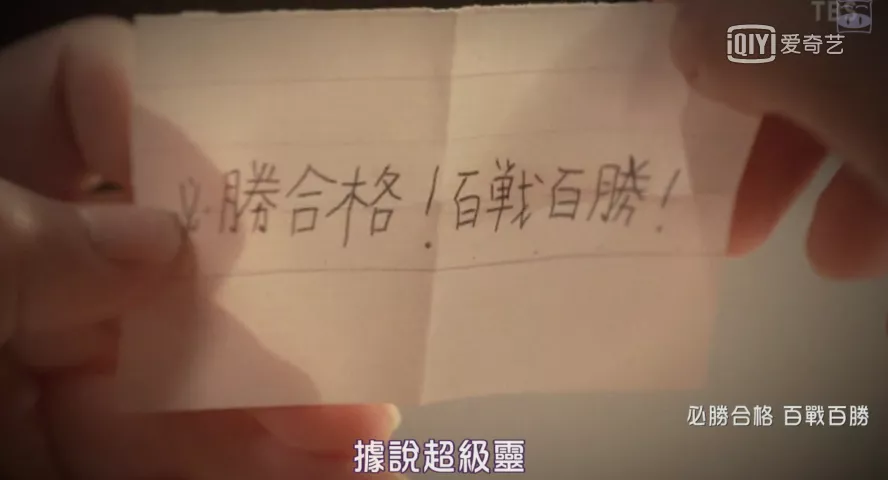 TBS
iQIYI 爱奇艺
必勝合格！百戦百勝！
必勝合格 百戰百勝
據說超級靈